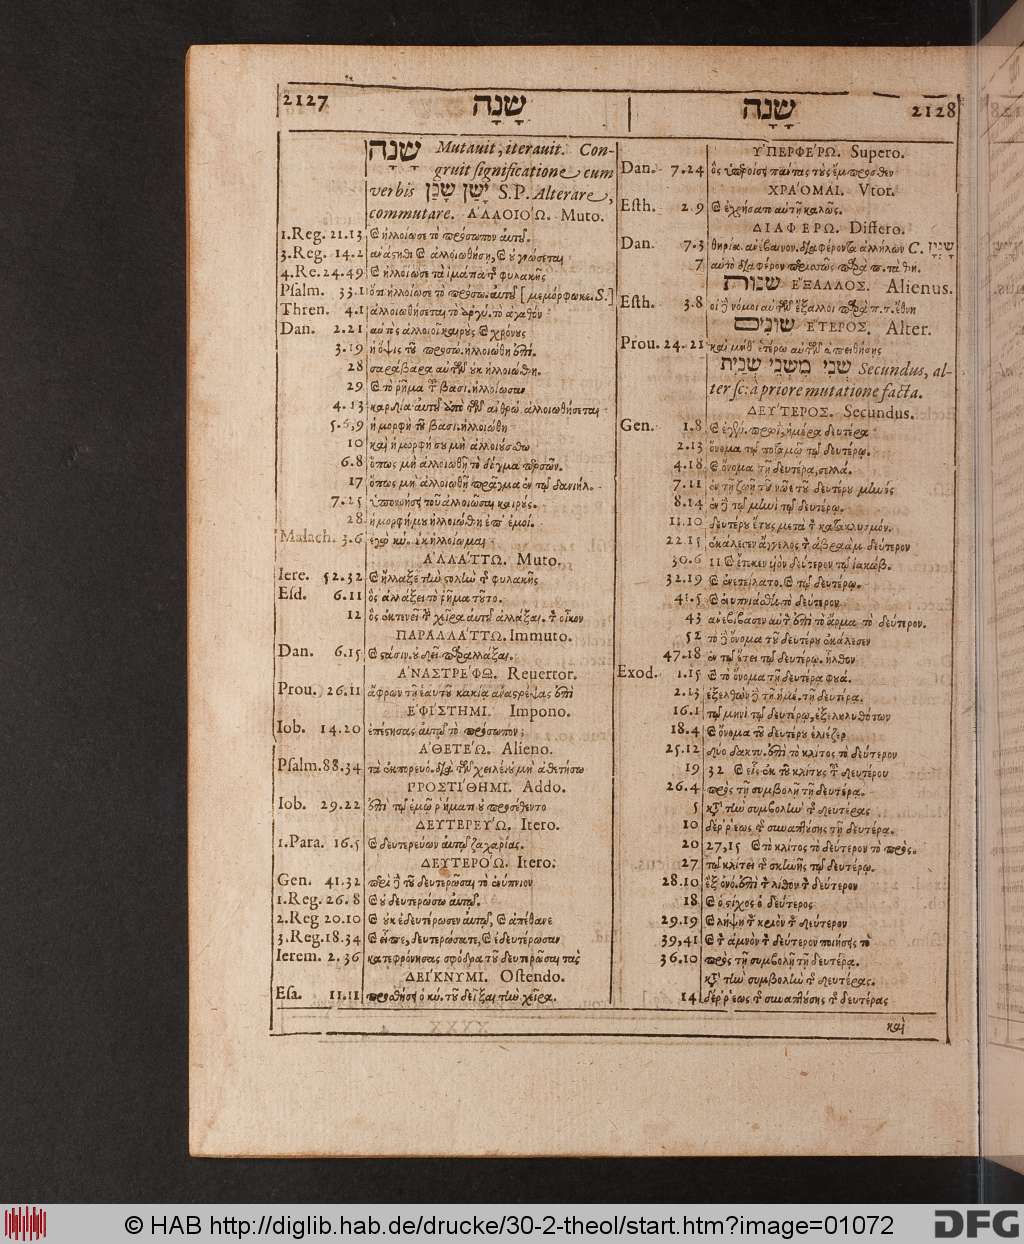 2127 שָׁנָה
שָׁנָה Mutauit, iterauit. Con-
gruit significatione cum
verbis יָשַׁן שָׁכַן S.P. Alterare,
commutare. ἈΛΛΟΙΌΩ. Muto.
1.Reg. 21.13 ἠλλοίωσε τὸ πρόσωπον αὐτοῦ.
3.Reg. 14.2 ἀνάστηθι καὶ ἀλλοιωθήσῃ, καὶ οὐ γνώσεται
4.Re. 24.49 καὶ ἠλλοίωσε τὰ ἱμάτια τῆς φυλακῆς
Psalm. 33.1 ὁπ. ἠλλοίωσε τὸ πρόσω. αὐτοῦ
Thren. 4.1 ἀλλοιωθήσεται τὸ ἀργύ. τὸ ἀγαθόν
Dan. 2.21 αὐτὸς ἀλλοιοῖ καιροὺς καὶ χρόνους
3.19 ἡ ὄψις τοῦ προσώ. ἠλλοιώθη ἐπί.
28 σαράβαρα αὐτῶν οὐκ ἠλλοιώθη.
29 καὶ τὸ ῥῆμα τοῦ βασι. ἠλλοίωσαν
4.13 καρδία αὐτοῦ ἀπὸ τῶν ἀνθρώ. ἀλλοιωθήσεται
5.6,9 ἡ μορφὴ τοῦ βασι. ἠλλοιώθη
10 καὶ ἡ μορφή σου μὴ ἀλλοιούσθω
6.8 ὅπως μὴ ἀλλοιωθῇ τὸ δόγμα περσῶν.
17 ὅπως μὴ ἀλλοιωθῇ πρᾶγμα ἐν τῷ δανιήλ.
7.25 ὑπονοήσει τοῦ ἀλλοιῶσαι καιρούς.
28 ἡ μορφή μου ἠλλοιώθη ἐπ' ἐμοί.
Malach. 3.6 ἐγὼ κύ. οὐκ ἠλλοίωμαι
ἈΛΛΆΤΤΩ. Muto.
Iere. 52.32 καὶ ἤλλαξε τὴν στολὴν τῆς φυλακῆς
Esd. 6.11 ὃς ἀλλάξει τὸ ῥῆμα τοῦτο.
12 ὃς ἐκτενεῖ τὴν χεῖρα αὐτοῦ ἀλλάξαι. τὸν οἶκον
ΠΑΡΑΛΛΆΤΤΩ. Immuto.
Dan. 6.15 καὶ στάσιν. οὐ δεῖ παραλλάξαι.
ἈΝΑΣΤΡΈΦΩ. Reuertor.
Prou. 26.11 ἄφρων τῇ ἑαυτοῦ κακίᾳ ἀναστρέψας ἐπὶ
ἘΦΊΣΤΗΜΙ. Impono.
Iob. 14.20 ἐπέστησας αὐτῷ τὸ πρόσωπον;
ἈΘΕΤΈΩ. Alieno.
Psalm. 88.34 τὰ ἐκπορευό. διὰ τῶν χειλέων μου μὴ ἀθετήσω
ΠΡΟΣΤΊΘΗΜΙ. Addo.
Iob. 29.22 ἐπὶ τῷ ἐμῷ ῥήματι οὐ προσέθεντο
ΔΕΥΤΕΡΕΎΩ. Itero.
1.Para. 16.5 καὶ δευτερεύων αὐτῷ ζαχαρίας.
ΔΕΥΤΕΡΌΩ. Itero.
Gen. 41.32 περὶ δὲ τοῦ δευτερῶσαι τὸ ἐνύπνιον
1.Reg. 26.8 καὶ οὐ δευτερώσω αὐτῷ.
2.Reg 20.10 καὶ οὐκ ἐδευτέρωσεν αὐτῷ, καὶ ἀπέθανε
3.Reg. 18.34 καὶ εἶπε, δευτερώσατε, καὶ ἐδευτέρωσαν
Ierem. 2.36 κατεφρόνησας σφόδρα τοῦ δευτερῶσαι τὰς
ΔΕΊΚΝΥΜΙ. Ostendo.
Esa. 11.11 προσθήσει ὁ κύ. τοῦ δεῖξαι τὴν χεῖρα.
שָׁנָה 2128
ὙΠΕΡΦΈΡΩ. Supero.
Dan. 7.24 ὃς ὑπεροίσει πάντας τοὺς ἔμπροσθεν
ΧΡΆΟΜΑΙ. Vtor.
Esth. 2.9 καὶ ἐχρήσατο αὐτῇ καλῶς.
ΔΙΑΦΈΡΩ. Differo.
Dan. 7.3 θηρία. ἀνέβαινον. διαφέροντα ἀλλήλων C. שָׁנָיִן
7 αὐτὸ διάφερον περισσῶς παρὰ π. τὰ θη.
שׁנוֹת ἘΞΑΛΛΟΣ. Alienus.
Esth. 3.8 οἱ δὲ νόμοι αὐτῶν ἔξαλλοι παρὰ π. τ. ἔθνη
שׁוֹנִים ἝΤΕΡΟΣ. Alter.
Prou. 24.21 καὶ μηθ' ἑτέρῳ αὐτῶν ἀπειθήσῃς
שֵׁנִי מִשְׁנֵי שֵׁנִית Secundus, al-
ter sc: à priore mutatione facta.
ΔΕΎΤΕΡΟΣ. Secundus.
Gen. 1.8 καὶ ἐγέν. πρωΐ, ἡμέρα δευτέρα
2.13 ὄνομα τῷ ποταμῷ τῷ δευτέρῳ.
4.18 καὶ ὄνομα τῇ δευτέρᾳ, σελλά.
7.11 ἐν τῇ ζωῇ τοῦ νῶε τοῦ δευτέρου μηνός
8.14 ἐν δὲ τῷ μηνὶ τῷ δευτέρῳ.
11.10 δευτέρου ἔτους μετὰ τὸν κατακλυσμόν.
22.15 ἐκάλεσεν ἄγγελος τὸν ἀβραὰμ δεύτερον
30.6 11 καὶ ἔτεκεν υἱὸν δεύτερον τῷ ἰακώβ.
32.19 καὶ ἐνετείλατο. καὶ τῷ δευτέρῳ.
41.5 καὶ ἐνυπνιάσθη τὸ δεύτερον
43 ἀνεβίβασεν αὐτὸν ἐπὶ τὸ ἅρμα τὸ δεύτερον.
52 τὸ δὲ ὄνομα τοῦ δευτέρου ἐκάλεσεν
47.18 ἐν τῷ ἔτει τῷ δευτέρῳ. ἦλθον
Exod. 1.15 καὶ τὸ ὄνομα τῇ δευτέρᾳ φουά.
2.13 ἐξελθὼν δὲ τῇ ἡμέ. τῇ δευτέρᾳ.
16.1 τῷ μηνὶ τῷ δευτέρῳ, ἐξεληλυθότων
18.4 καὶ ὄνομα τοῦ δευτέρου ἐλιέζερ
25.12 δύο δακτυ. ἐπὶ τὸ κλίτος τὸ δεύτερον
19 32 καὶ εἷς ἐκ τοῦ κλίτους τοῦ δευτέρου
26.4 πρὸς τῇ συμβολῇ τῇ δευτέρᾳ.
5 κατὰ τὴν συμβολὴν τῆς δευτέρας
10 δέρρεως τῆς συναπτούσης τῇ δευτέρᾳ.
20 27,15 καὶ τὸ κλίτος τὸ δεύτερον τὸ πρός.
27 τῷ κλίτει τῆς σκηνῆς τῷ δευτέρῳ.
28.10 ἓξ ὀνό. ἐπὶ τὸν λίθον τὸν δεύτερον
18 καὶ ὁ στίχος ὁ δεύτερος
29.19 καὶ λήψῃ τὸν κριὸν τὸν δεύτερον
39,41 καὶ τὸν ἀμνὸν τὸν δεύτερον ποιήσεις τὸ
36.10 πρὸς τῇ συμβολῇ τῇ δευτέρᾳ.
κατὰ τὴν συμβολὴν τῆς δευτέρας.
14 δέρρεως τῆς συναπτούσης τῆς δευτέρας
καὶ
© HAB http://diglib.hab.de/drucke/30-2-theol/start.htm?image=01072
DFG